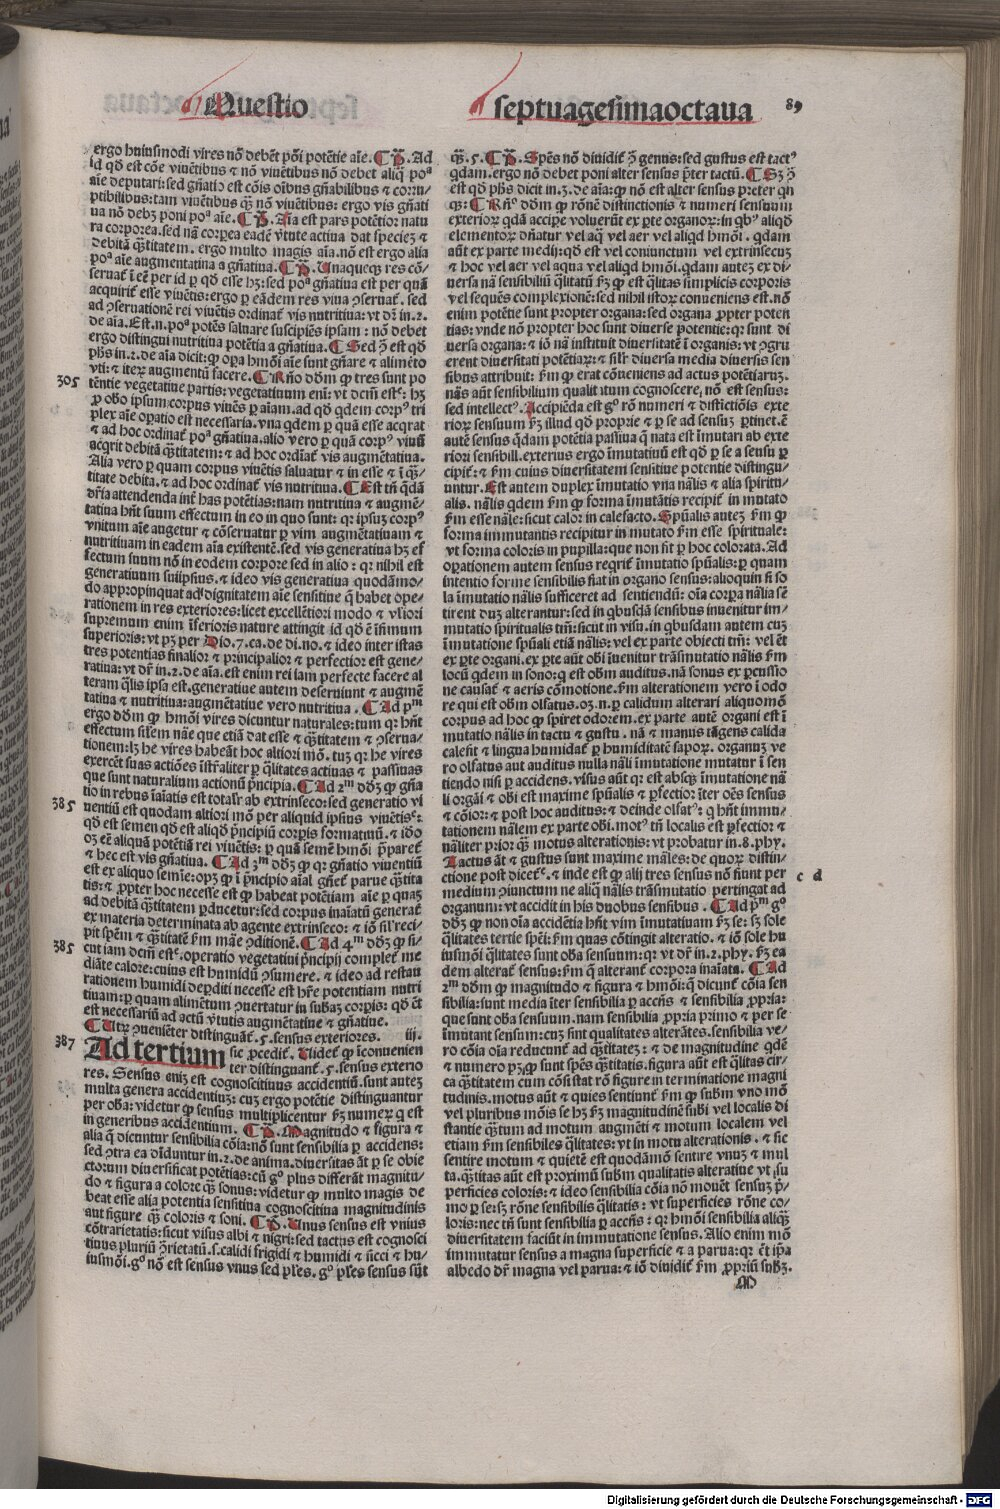 Questio
septuagesimaoctaua
89
ergo huiusmodi vires nō debēt pōi potētie aīe. ¶ P̄. Ad
id qđ est cōe viuētibus ⁊ nō viuētibus nō debet aliq̄ poª
aīe deputari: sed gñatio est cōis oībus gñabilibus ⁊ corru/
ptibilibus: tam viuētibus q̄ȝ nō viuētibus: ergo vis gñati
ua nō debȝ poni poª aīe. ¶ P̄. Aīa est pars potētior natu
ra corporea. sed nā corp̄ea eadē v̄tute actiua dat specieȝ ⁊
debitā q̄ȝtitatem. ergo multo magis aīa. nō est ergo alia
poª aīe augmentatiua a gñatiua. ¶ P̄. Unaqueqȝ res cō/
seruat̄ ī eē per id ꝑ qđ esse hȝ: sed poª gñatiua est per quā
acquirit̄ esse viuētis: ergo ꝑ eādem res viua ꝯseruat̄. sed
ad ꝯseruationē rei viuētis ordinat̄ vis nutritiua: vt dr̄ in.2.
de aīa. Est.n. poª potēs saluare suscipiēs ipsam: nō debet
ergo distingui nutritiua potētia a gñatiua. ¶ Sed ꝯ̄ est qđ
ph̄s in.2. de aīa dicit: ꝙ oꝑa hmōi aīe sunt gñare ⁊ alimēto
vti: ⁊ iterȝ augmentū facere. ¶ Rn̄o dōm ꝙ tres sunt po
305
tētie vegetatiue partis: vegetatiuum enī: vt dcm̄ estᶜ: hȝ
ꝓ obo ipsum corpus viuēs ꝑ aīam. ad qđ qdem corpꝰ tri
plex aīe oꝑatio est necessaria. vna qdem ꝑ quā esse acqrat
⁊ ad hoc ordinat̄ poª gñatiua. alio vero ꝑ quā corpꝰ viuū
acq̄rit debitā q̄ȝtitatem: ⁊ ad hoc ordīat̄ vis augmētatiua.
Alia vero ꝑ quam corpus viuētis saluatur ⁊ in esse ⁊ ī q̄ȝ/
titate debita. ⁊ ad hoc ordinat̄ vis nutritiua. ¶ Est tn̄ q̄dā
dr̄īa attendenda int̄ has potētias: nam nutritiua ⁊ augmē/
tatiua hn̄t suum effectum in eo in quo sunt: qꝛ ipsuȝ corpꝰ
vnitum aīe augetur ⁊ cōseruatur ꝑ vim augmētatiuam ⁊
nutritiuam in eadem aīa existentē. sed vis generatiua hȝ ef
fectum suum nō in eodem corpore sed in alio: qꝛ nihil est
generatiuum suiipsius. ⁊ ideo vis generatiua quodāmo/
do appropinquat ad dignitatem aīe sensitiue q̄ habet ope/
rationem in res exteriores: licet excellētiori modo ⁊ vl̄iori
supremum enim īferioris nature attingit id qđ ē īfimum
superioris: vt pȝ per Dio.7.ca.de di.no. ⁊ ideo inter istas
tres potentias finalior ⁊ principalior ⁊ perfectior est gene/
ratiua: vt dr̄ in.2. de aīa. est enim rei iam perfecte facere al
teram q̄lis ipsa est. generatiue autem deseruiunt ⁊ augmē
tatiua ⁊ nutritiua: augmētatiue vero nutritiua. ¶ Ad pᵐ
ergo dōm ꝙ hmōi vires dicuntur naturales: tum qꝛ hn̄t
effectum sil̄em nāe que etiā dat esse ⁊ q̄ȝtitatem ⁊ ꝯserua/
tionem: lȝ he vires habeāt hoc altiori mō. tuȝ qꝛ he vires
exercēt suas actiōes īstr̄aliter ꝑ q̄litates actiuas ⁊ passiuas
que sunt naturalium actionū p̄ncipia. ¶ Ad 2ᵐ dōȝ ꝙ gña
tio in rebus īaīatis est totalr̄ ab extrinseco: sed generatio vi
385
uentiū est quodam altiori mō per aliquid ipsius viuētisᶜ:
qđ est semen qđ est aliqđ p̄ncipiū corꝑis formatiuū. ⁊ iđo
oȝ eē aliquā potētiā rei viuētis: ꝑ quā semē hmōi p̄paret̄
⁊ hec est vis gñatiua. ¶ Ad 3ᵐ dōȝ ꝙ qꝛ gñatio viuentiū
est ex aliquo semīe: opȝ ꝙ ī p̄ncipio aīal gñet̄ parue q̄ȝtita
tis: ⁊ ꝓpter hoc necesse est ꝙ habeat potētiam aīe ꝑ quaȝ
ad debitā q̄ȝtitatem ꝑducetur: sed corpus inaīatū generat̄
ex materia determinata ab agente extrinseco: ⁊ iō sil̄ reci/
pit spēm ⁊ q̄ȝtitatē ẜm māe ꝯditionē. ¶ Ad 4ᵐ dōȝ ꝙ si/
385
cut iam dcm̄ estᶜ. operatio vegetatiui p̄ncipij complet̄ me
diāte calore: cuius est humidū ꝯsumere. ⁊ ideo ad restau
rationem humidi deꝑditi necesse est hr̄e potentiam nutri
tiuam: ꝑ quam alimētum ꝯuertatur in subaȝ corꝑis: qđ ēt
est necessariū ad actū v̄tutis augmētatiue ⁊ gñatiue.
¶ Utrȝ ꝯueniēter distinguāt̄.5.sensus exteriores. iij.
387
Ad tertium sic ꝓcedit̄. Uidet̄ ꝙ īconuenien
ter distinguant̄.5.sensus exterio
res. Sensus eniȝ est cognoscitiuus accidentiū. sunt auteȝ
multa genera accidentiuȝ: cuȝ ergo potētie distinguantur
per oba: videtur ꝙ sensus multiplicentur ẜȝ numerȝ q est
in generibus accidentium. ¶ P̄. Magnitudo ⁊ figura ⁊
alia q̄ dicuntur sensibilia cōia: nō sunt sensibilia ꝑ accidens:
sed ꝯtra ea diuiduntur in.2.de anima. diuersitas āt ꝑ se obie
ctorum diuersificat potētias: cū gº plus differāt magnitu/
do ⁊ figura a colore q̄ȝ sonus: videtur ꝙ multo magis de
beat esse alia potentia sensitiua cognoscitiua magnitudinis
aut figure q̄ȝ coloris ⁊ soni. ¶ P̄. Unus sensus est vnius
cōtrarietatis: sicut visus albi ⁊ nigri: sed tactus est cognosci
tiuus pluriū ꝯrietatū. s. calidi frigidi ⁊ humidi ⁊ sicci ⁊ hu/
iusmōi. gº nō est sensus vnus sed ples. gº ples sensus sūt
q̄ȝ.5. ¶ P̄. Spēs nō diuidit̄ ꝯ̄ genus: sed gustus est tactꝰ
qdam. ergo nō debet poni alter sensus p̄ter tactū. ¶ Sȝ ꝯ̄
est qđ ph̄s dicit in.3. de aīa: ꝙ nō est alter sensus preter qn
qȝ: ¶ Rn̄º dōm ꝙ rōnē distinctionis ⁊ numeri sensuum
exteriorȝ qdā acciꝑe voluerūt ex ꝑte organorȝ: in qbꝰ aliqđ
elementorȝ dn̄atur vel aq̄ vel aer vel aliqd hmōi. qdam
aūt ex parte medij: qđ est vel coniunctum vel extrinsecuȝ
⁊ hoc vel aer vel aqua vel aliqd hmōi. qdam auteȝ ex di/
uersa nā sensibiliū q̄litatū ẜȝ ꝙ est q̄litas simplicis corporis
vel sequēs complexionē: sed nihil istorȝ conueniens est. nō
enim potētie sunt propter organa: sed organa ꝓpter poten
tias: vnde nō propter hoc sunt diuerse potentie: qꝛ sunt di
uersa organa: ⁊ iō nā instituit diuersitatē ī organis: vt ꝯgru
erent diuersitati potētiarȝ: ⁊ sil̄r diuersa media diuersis sen
sibus attribuit: ẜm ꝙ erat cōueniens ad actus potētiaruȝ.
nās aūt sensibilium qualitatum cognoscere, nō est sensus:
sed intellectꝰ. Accipiēda est gº rō numeri ⁊ distīctiōis exte
riorȝ sensuum ẜȝ illud qđ proprie ⁊ ꝑ se ad sensuȝ ꝑtinet. ē
autē sensus q̄dam potētia passiua q̄ nata est īmutari ab exte
riori sensibili. exterius ergo īmutatiuū est qđ ꝑ se a sensu ꝑ
cipit̄: ⁊ ẜm cuius diuersitatem sensitiue potentie distingu/
untur. Est autem duplex īmutatio vna nālis ⁊ alia spiritu/
alis. nālis qdem ẜm ꝙ forma īmutātis recipit̄ in mutato
ẜm esse nāle: sicut calor in calefacto. Spūalis auteȝ ẜm ꝙ
forma immutantis recipitur in mutato ẜm esse spirituale:
vt forma coloris in pupilla: que non fit ꝑ hoc colorata. Ad
oꝑationem autem sensus reqrit̄ īmutatio spūalis: ꝑ quam
intentio forme sensibilis fiat in organo sensus: alioquin si so
la īmutatio nālis sufficeret ad sentiendū: oīa corꝑa nālia sē
tirent duȝ alterantur: sed in qbusdā sensibus inuenitur im/
mutatio spiritualis tm̄: sicut in visu. in qbusdam autem cuȝ
īmutatione spūali etiā nālis: vel ex parte obiecti tm̄: vel ēt
ex ꝑte organi. ex ꝑte aūt obi īuenitur trāsmutatio nālis ẜm
locū qdem in sono: q est obm auditus. nā sonus ex ꝑcussio
ne causat̄ ⁊ aeris cōmotione. ẜm alterationem vero ī odo
re qui est obm olfatus. oȝ.n. ꝑ calidum alterari aliquomō
corpus ad hoc ꝙ spiret odorem. ex parte autē organi est ī
mutatio nālis in tactu ⁊ gustu. nā ⁊ manus tāgens calida
calefit ⁊ lingua humidat̄ ꝑ humiditatē saporȝ. organuȝ ve
ro olfatus aut auditus nulla nāli īmutatione mutatur ī sen
tiendo nisi ꝑ accidens. visus aūt qꝛ est absqȝ īmutatione nā
li orgāi ⁊ obi est maxime spūalis ⁊ ꝑfectior īter oēs sensus
⁊ cōior: ⁊ post hoc auditus: ⁊ deinde olfatꝰ: q hn̄t immu/
tationem nālem ex parte obi. motꝰ tn̄ localis est ꝑfectior ⁊
nāliter prior q̄ȝ motus alterationis: vt probatur in.8.phy.
Tactus āt ⁊ gustus sunt maxime māles: de quorȝ distin/
ctione post dicet̄ᶜ. ⁊ inde est ꝙ alij tres sensus nō fiunt per
c d
medium ꝯiunctum ne aliq̄ nālis trāsmutatio pertingat ad
organum: vt accidit in his duobus sensibus. ¶ Ad pᵐ gº
dōȝ ꝙ non oīa accidētia hn̄t vim īmutatiuam ẜȝ se: sȝ sole
q̄litates tertie spēi: ẜm quas cōtingit alteratio. ⁊ iō sole hu
iusmōi q̄litates sunt oba sensuum: qꝛ vt dr̄ in.2.phy. ẜȝ ea
dem alterat̄ sensus: ẜm q̄ alterant̄ corpora inaīata. ¶ Ad
2ᵐ dōm ꝙ magnitudo ⁊ figura ⁊ hmōi: q̄ dicunt̄ cōia sen
sibilia: sunt media īter sensibilia ꝑ accn̄s ⁊ sensibilia ꝓpria:
que sunt oba sensuum. nam sensibilia ꝓpria primo ⁊ per se
īmutant sensum: cuȝ sint qualitates alterātes. sensibilia ve/
ro cōia oīa reducunt̄ ad q̄ȝtitateȝ: ⁊ de magnitudine qdē
⁊ numero pȝ ꝙ sunt spēs q̄ȝtitatis. figura aūt est q̄litas cir/
ca q̄ȝtitatem cum cōsistat rō figure in terminatione magni
tudinis. motus aūt ⁊ quies sentiunt̄ ẜm ꝙ subm vno mō
vel pluribus mōis se hȝ ẜȝ magnitudinē subi vel localis di
stantie q̄ȝtum ad motum augmēti ⁊ motum localem vel
etiam ẜm sensibiles q̄litates: vt in motu alterationis. ⁊ sic
sentire motum ⁊ quietē est quodāmō sentire vnuȝ ⁊ mul
ta. q̄ȝtitas aūt est proximū subm qualitatis alteratiue vt su
perficies coloris: ⁊ ideo sensibilia cōia nō mouēt sensuȝ p̄/
mo ꝑ se: sȝ rōne sensibilis q̄litatis: vt superficies rōne co/
loris: nec tn̄ sunt sensibilia ꝑ accn̄s: qꝛ hmōi sensibilia aliq̄ȝ
diuersitatem faciūt in immutatione sensus. Alio enim mō
immutatur sensus a magna superficie ⁊ a parua: qꝛ ēt ip̄a
albedo dr̄ magna vel parua: ⁊ iō diuidit̄ ẜm ꝓpriū subȝ.
M
Digitalisierung gefördert durch die Deutsche Forschungsgemeinschaft - DFG